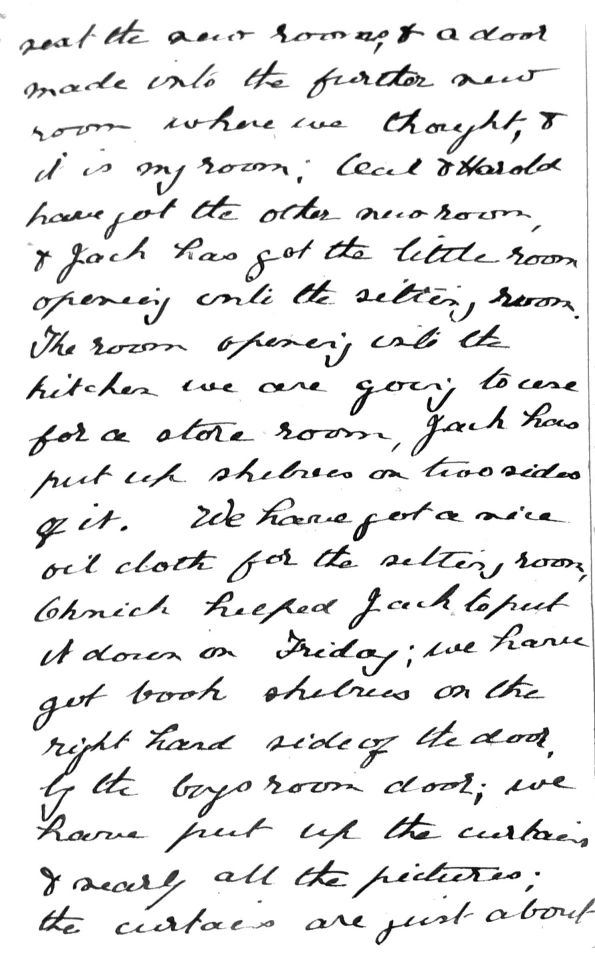 next the new rooms, & a door
made into the further new
room where we thought, &
it is my room; Cecil & Harold
have got the other new room,
& Jack has got the little room
opening into the sitting room.
The room opening into the
kitchen we are going to use
for a store room, Jack has
put up shelves on two sides
of it. We have got a nice
oil cloth for the sitting room,
helped Jack to put
it down on Friday; we have
got book shelves on the
right hand side of the door,
by the boys room door; we
have put up the curtains
& nearly all the pictures;
the curtains are just about